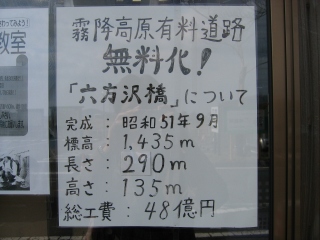 わってみよう!
教室
霧降高原有料道路
無料化!
「六方沢橋」について
完成:昭和51年9月
標高:1,435m
長さ:290m
高さ:135m
総工費:48億円